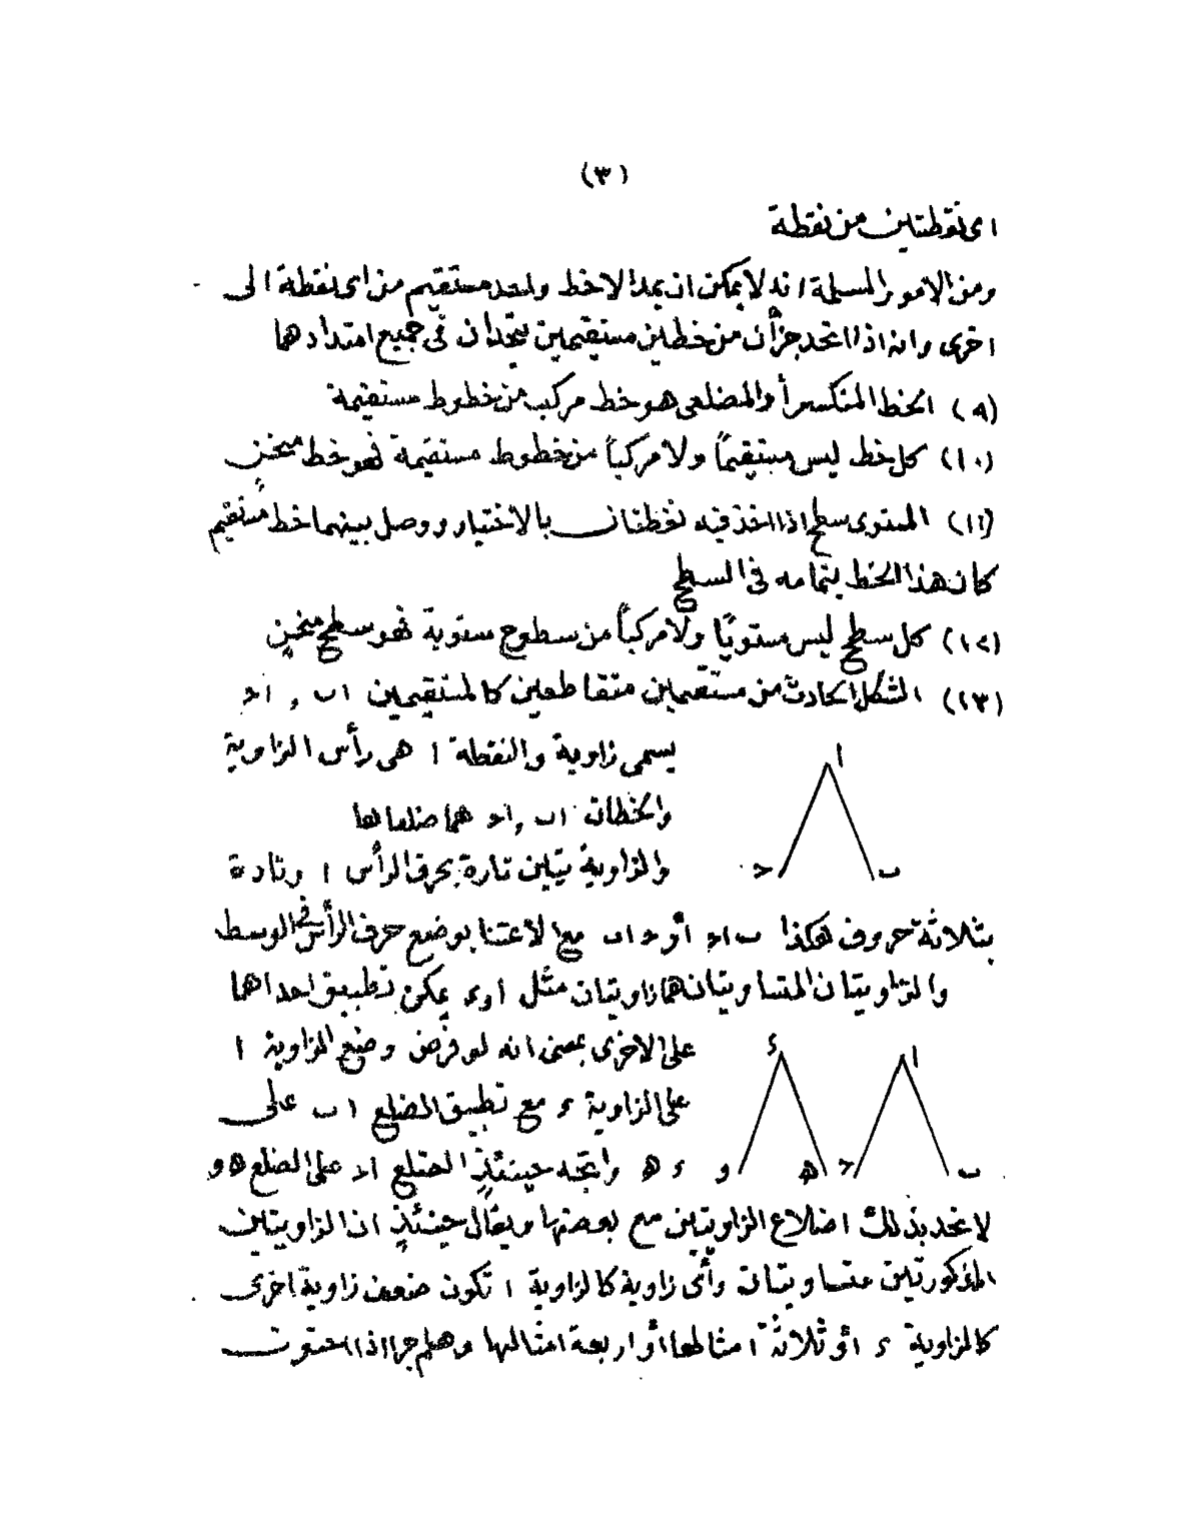 (٣)
اى نقطتين من نقطة
ومن الامور المسلمة انه لا يمكن ان يمد الا خط واحد مستقيم من اى نقطة الى
اخرى وانه اذا اتحد جزأن من خطين مستقيمين يتحدان فى جميع امتدادهما
(٩) الخط المنكسر أو المضلعى هو خط مركب من خطوط مستقيمة
(١٠) كل خط ليس مستقيمًا ولا مركبًا من خطوط مستقيمة فهو خط منحنٍ
(١١) المستوى سطح اذا اخذ فيه نقطتان بالاختيار ووصل بينهما خط مستقيم
كان هذا الخط بتمامه فى السطح
(١٢) كل سطح ليس مستويًا ولا مركبًا من سطوح مستوية فهو سطح منحنٍ
(١٣) الشكل الحادث من مستقيمين متقاطعين كالمستقيمين اب , اح
يسمى زاوية والنقطة ا هى رأس الزاوية
والخطان اب , اح هما ضلعاها
والزاوية تبين تارة بحرف الرأس ا وتارة
بثلاثة حروف هكذا ب اح أو ح اب مع الاعتنا بوضع حرف الرأس فى الوسط
والزاويتان المتساويتان هما زاويتان مثل ا و ء يمكن تطبيق احداهما
على الاخرى بمعنى انه لو فرض وضع الزاوية ا
على الزاوية ء مع تطبيق الضلع ا ب على
ء ه واتجه حينئذٍ الضلع اح على الضلع ه و
لاتحد بذلك اضلاع الزاويتين مع بعضها ويقال حينئذٍ ان الزاويتين
المذكورتين متساويتان وأى زاوية كالزاوية ا تكون ضعف زاوية اخرى
كالزاوية ء أو ثلاثة امثالها أو اربعة امثالها وهلم جرا اذا احتوت
ا
ح ب
ء ا
و ه ح ب